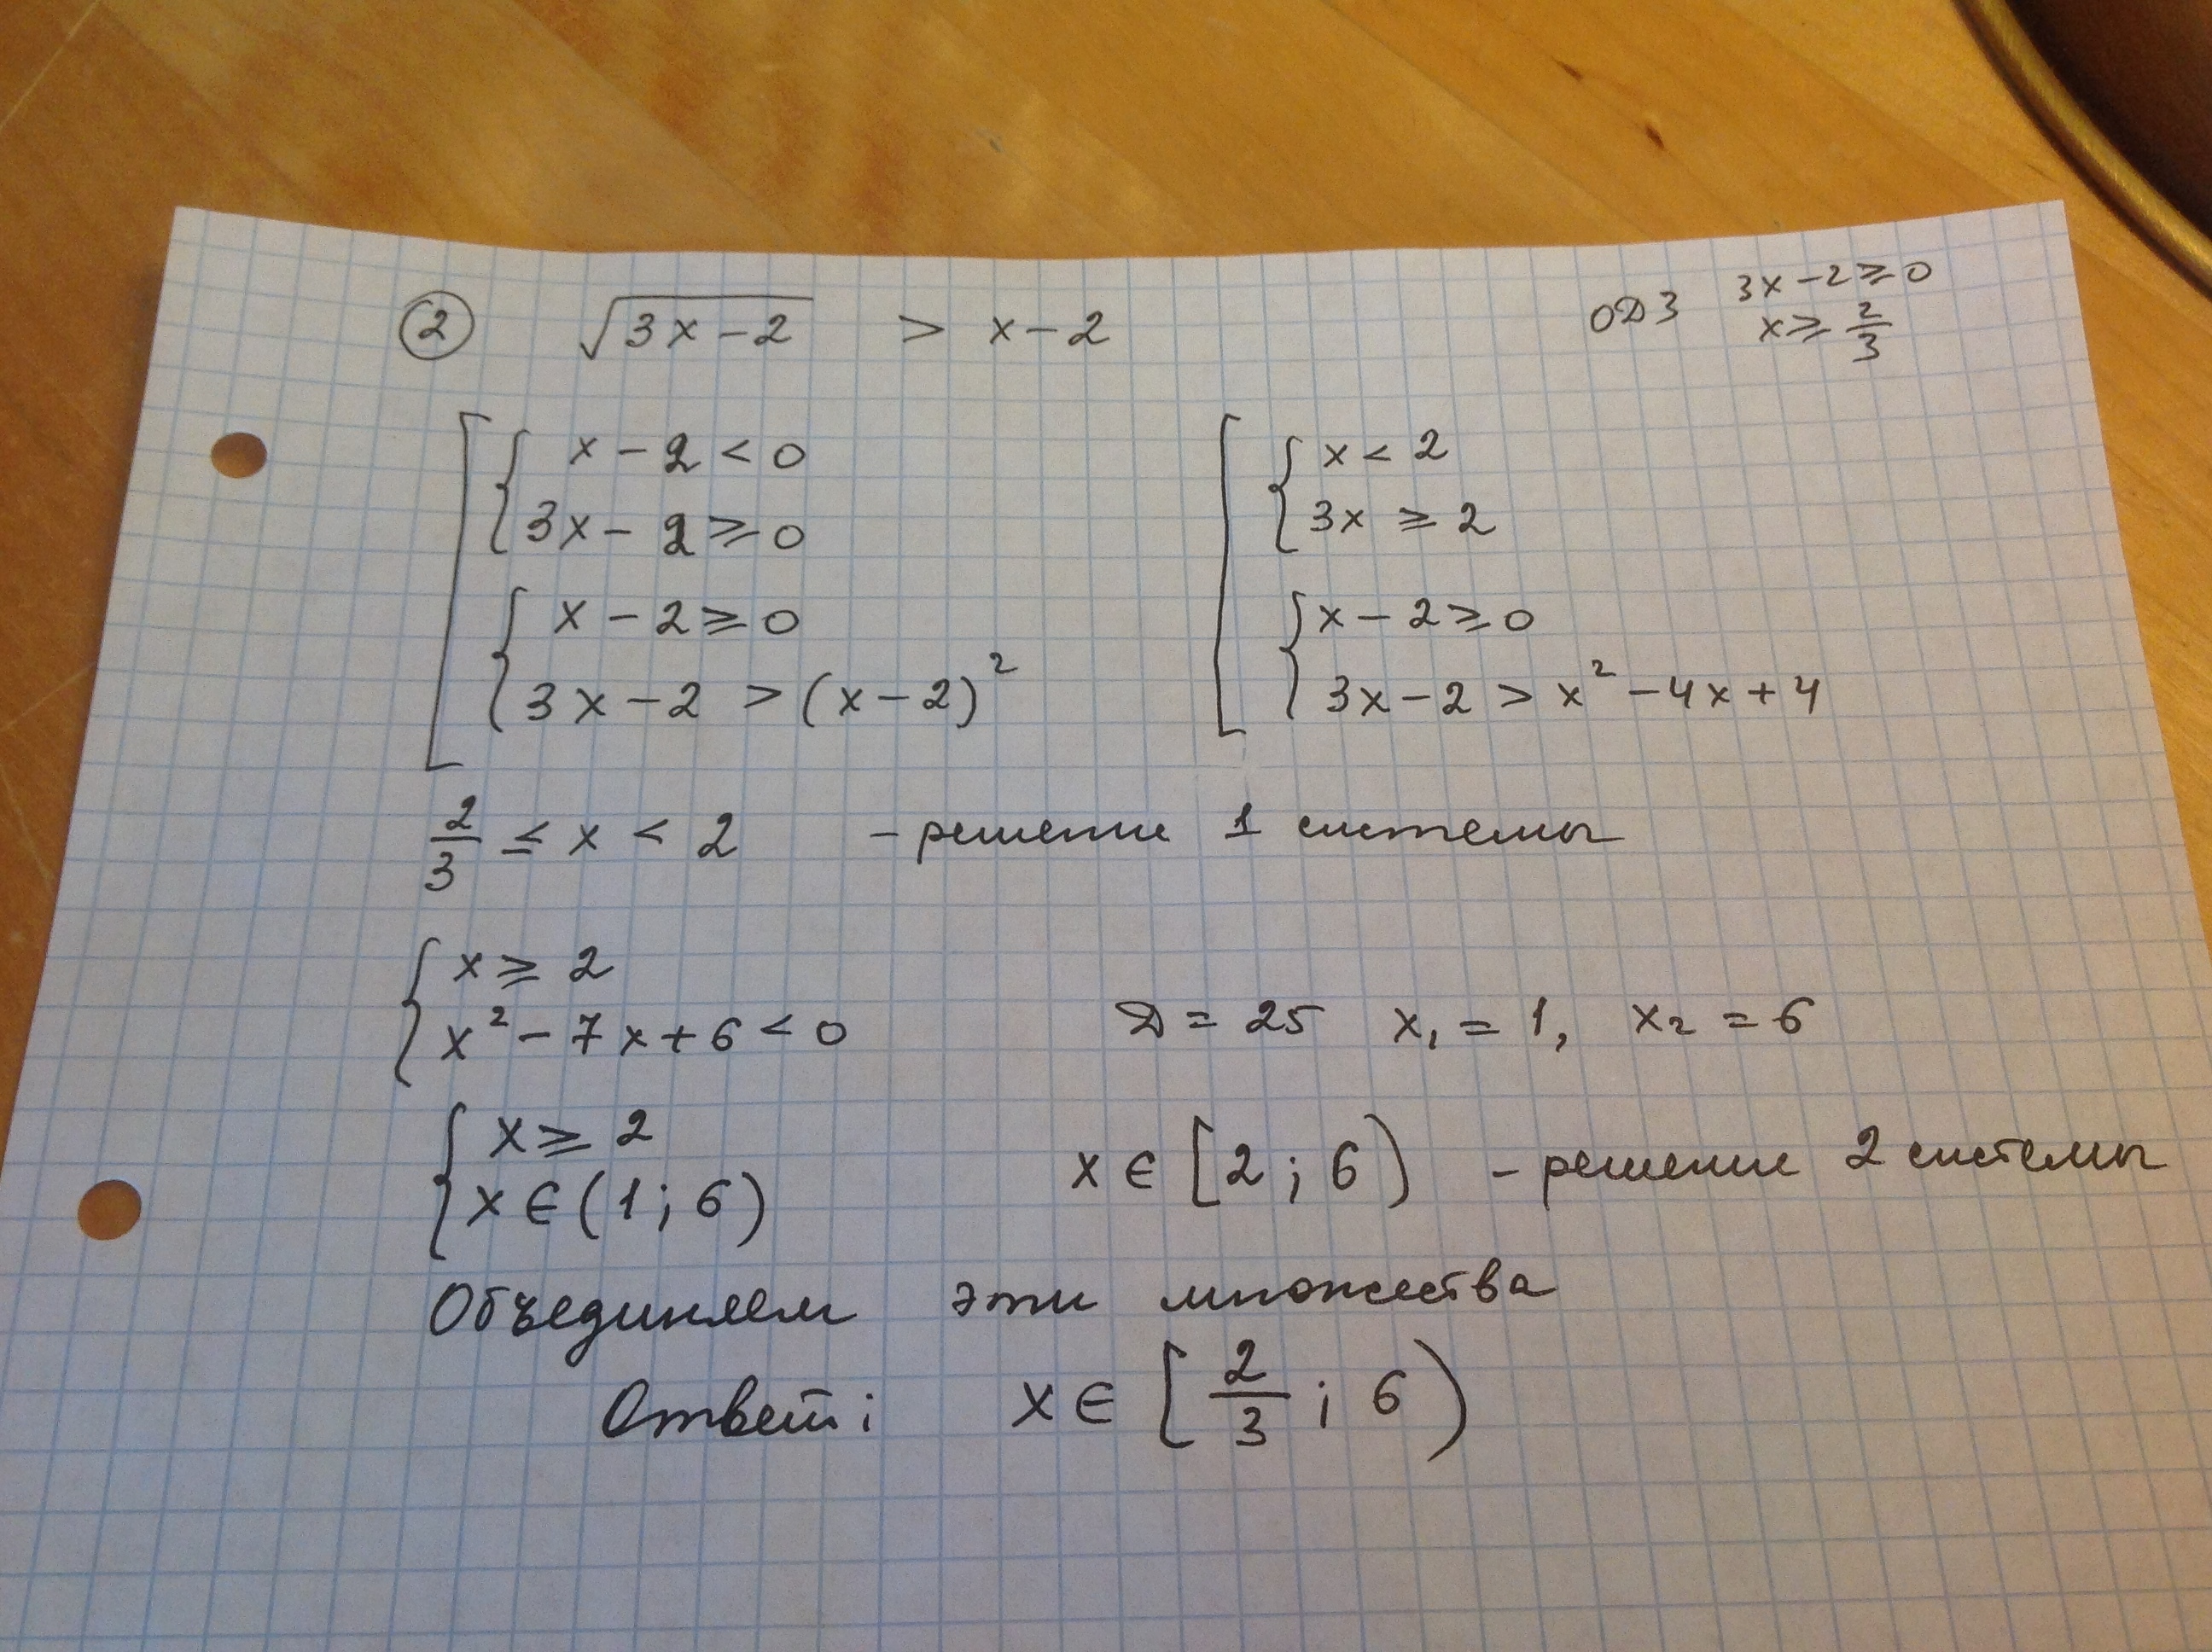 ② √(3x-2) > x-2
ОДЗ 3x-2≥0
x≥ 2/3
[ { x-2<0
3x-2≥0
{ x-2≥0
3x-2>(x-2)²
[ { x<2
3x≥2
{ x-2≥0
3x-2>x²-4x+4
2/3 ≤ x < 2 - решение 1 системы
{ x≥2
x²-7x+6<0
D=25 x₁=1, x₂=6
{ x≥2
x∈(1;6)
x∈[2;6) - решение 2 системы
Объединяем эти множества
Ответ: x∈[2/3;6)